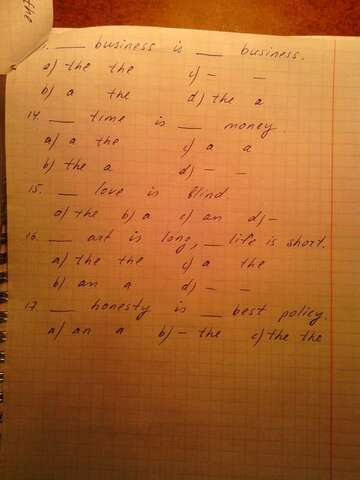 the
1. ___ business is ___ business.
a) the the c) - -
b) a the d) the a
14. ___ time is ___ money.
a) a the c) a a
b) the a d) - -
15. ___ love is blind.
a) the b) a c) an d) -
16. ___ art is long, ___ life is short.
a) the the c) a the
b) an a d) - -
17. ___ honesty is ___ best policy.
a) an a b) - the c) the the